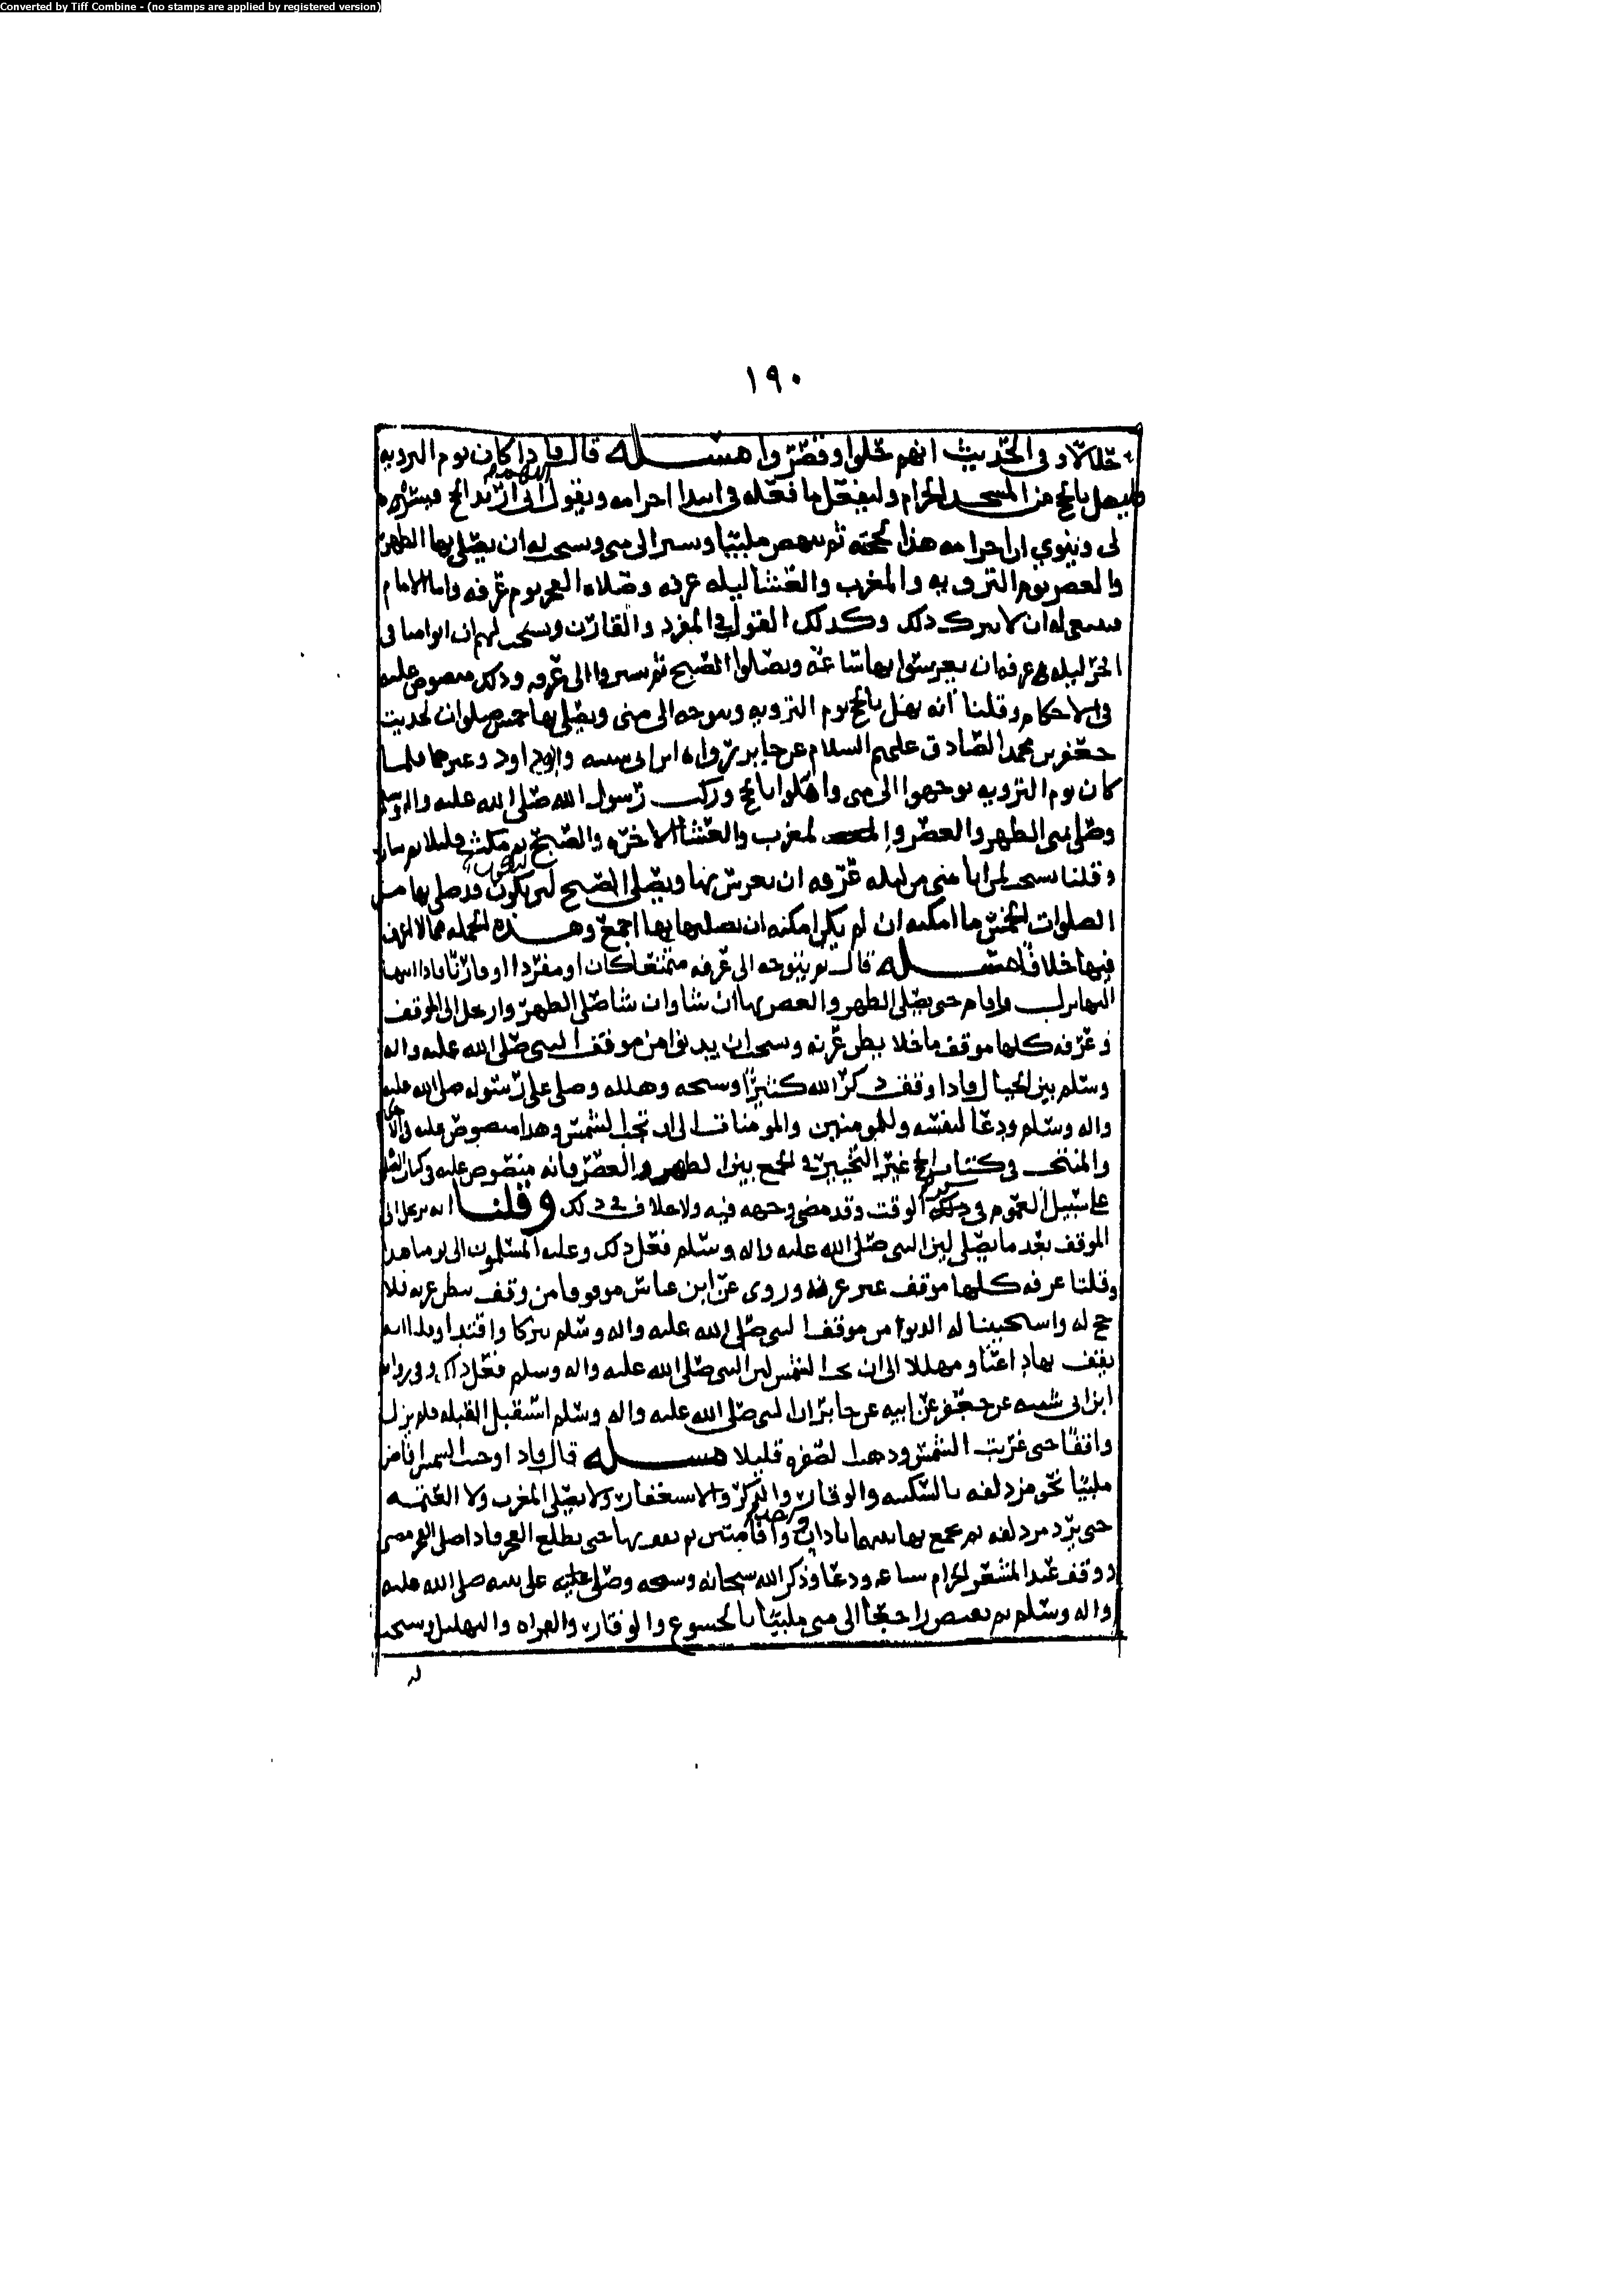 Converted by Tiff Combine - (no stamps are applied by registered version)
١٩٠
حلالا وفي الحديث انهم حلوا وقصروا مسئله قال فاذا كان يوم الترويه
فليهل بالحج من المسجد الحرام وليفعل ما فعله في ابتدا احرامه ويقول اللهم اني اريد الحج فيسره
لي وينوي ان احرامه هذا لحجته ثم ينهض ملبيا ويسير الى منى ويستحب له ان يصلي بها الظهر
والعصر يوم الترويه والمغرب والعشا ليله عرفه وصلاه الفجر يوم عرفه واما الامام
فينبغي له ان لا يترك ذلك وكذلك القول في المفرد والقارن ويستحب لهم ان اتوا منا في
اخر ليله عرفه ان يعرسوا بها ساعه ويصلوا الصبح ثم يسيروا الى عرفه وذلك منصوص عليه
في الاحكام وقلنا انه يهل بالحج يوم الترويه ويتوجه الى منى ويصلي بها خمس صلوات لحديث
جعفر بن محمد الصادق عليهم السلام عن جابر رواه ابن ابي شيبه وابو داود وغيرهما فلما
كان يوم الترويه توجهوا الى منى واهلوا بالحج وركب رسول الله صلى الله عليه واله وسلم
وصلى بمنى الظهر والعصر والمغرب والعشا الاخره والصبح ثم مكث قليلا ثم سار
وقلنا يستحب لمن اتا منى من ليله عرفه ان يعرس بها ويصلي الصبح ليكون قد صلى بها من
الصلوات الخمس ما امكنه ان لم يكن امكنه ان يصليها بها اجمع وهذه الجمله مما لا اعرف
فيها خلافا مسئله قال ثم يتوجه الى عرفه متمتعا كان او مفردا او قارنا فاذا انتها
اليها نزل واقام حتى يصلي الظهر والعصر بها ان شا وان شا صلى الظهر وارتحل الى الموقف
وعرفه كلها موقف ما خلا بطن عرنه ويستحب ان يدنوا من موقف النبي صلى الله عليه واله
وسلم بين الجبال فاذا وقف ذكر الله كثيرا وسبحه وهلله وصلى على رسوله صلى الله عليه
واله وسلم ودعا لنفسه وللمومنين والمومنات الى ان تجب الشمس وهذا منصوص عليه في الاحكام
والمنتخب في كتاب الحج غير التخيير في الجمع بين الظهر والعصر فانه منصوص عليه في كتاب الصلاه
على سبيل العموم في ذلك الوقت وقد مضى وجهه فيه ولا خلاف في ذلك وقلنا انه يرتحل الى
الموقف بعد ما يصلي لان النبي صلى الله عليه واله وسلم فعل ذلك وعليه المسلمون الى يومنا هذا
وقلنا عرفه كلها موقف غير عرنه وروى عن ابن عباس موقوفا من وقف ببطن عرنه فلا
حج له واستحبينا له الدنوا من موقف النبي صلى الله عليه واله وسلم تبركا واقتدا وقلنا انه
يقف بها داعيا ومهللا الى ان تجب الشمس لان النبي صلى الله عليه واله وسلم فعل ذلك وفي روايه
ابن ابي شيبه عن جعفر عن ابيه عن جابر ان النبي صلى الله عليه واله وسلم استقبل القبله فلم يزل
واقفا حتى غربت الشمس وذهبت الصفره قليلا مسئله قال فاذا وجبت الشمس افاض
ملبيا نحو مزدلفه بالسكينه والوقار والذكر والاستغفار ولا يصلي المغرب ولا العتمه
حتى يرد مزدلفه ثم يجمع بها بينهما باذان واحد واقامتين ثم يقف بها حتى يطلع الفجر فاذا صلى الفجر مضى
ووقف عند المشعر الحرام ساعه ودعا وذكر الله سبحانه وسبحه وصلى على نبيه صلى الله عليه
واله وسلم ثم يفيض راجعا الى منى ملبيا بالخشوع والوقار والقراه والتهليل ويستحب